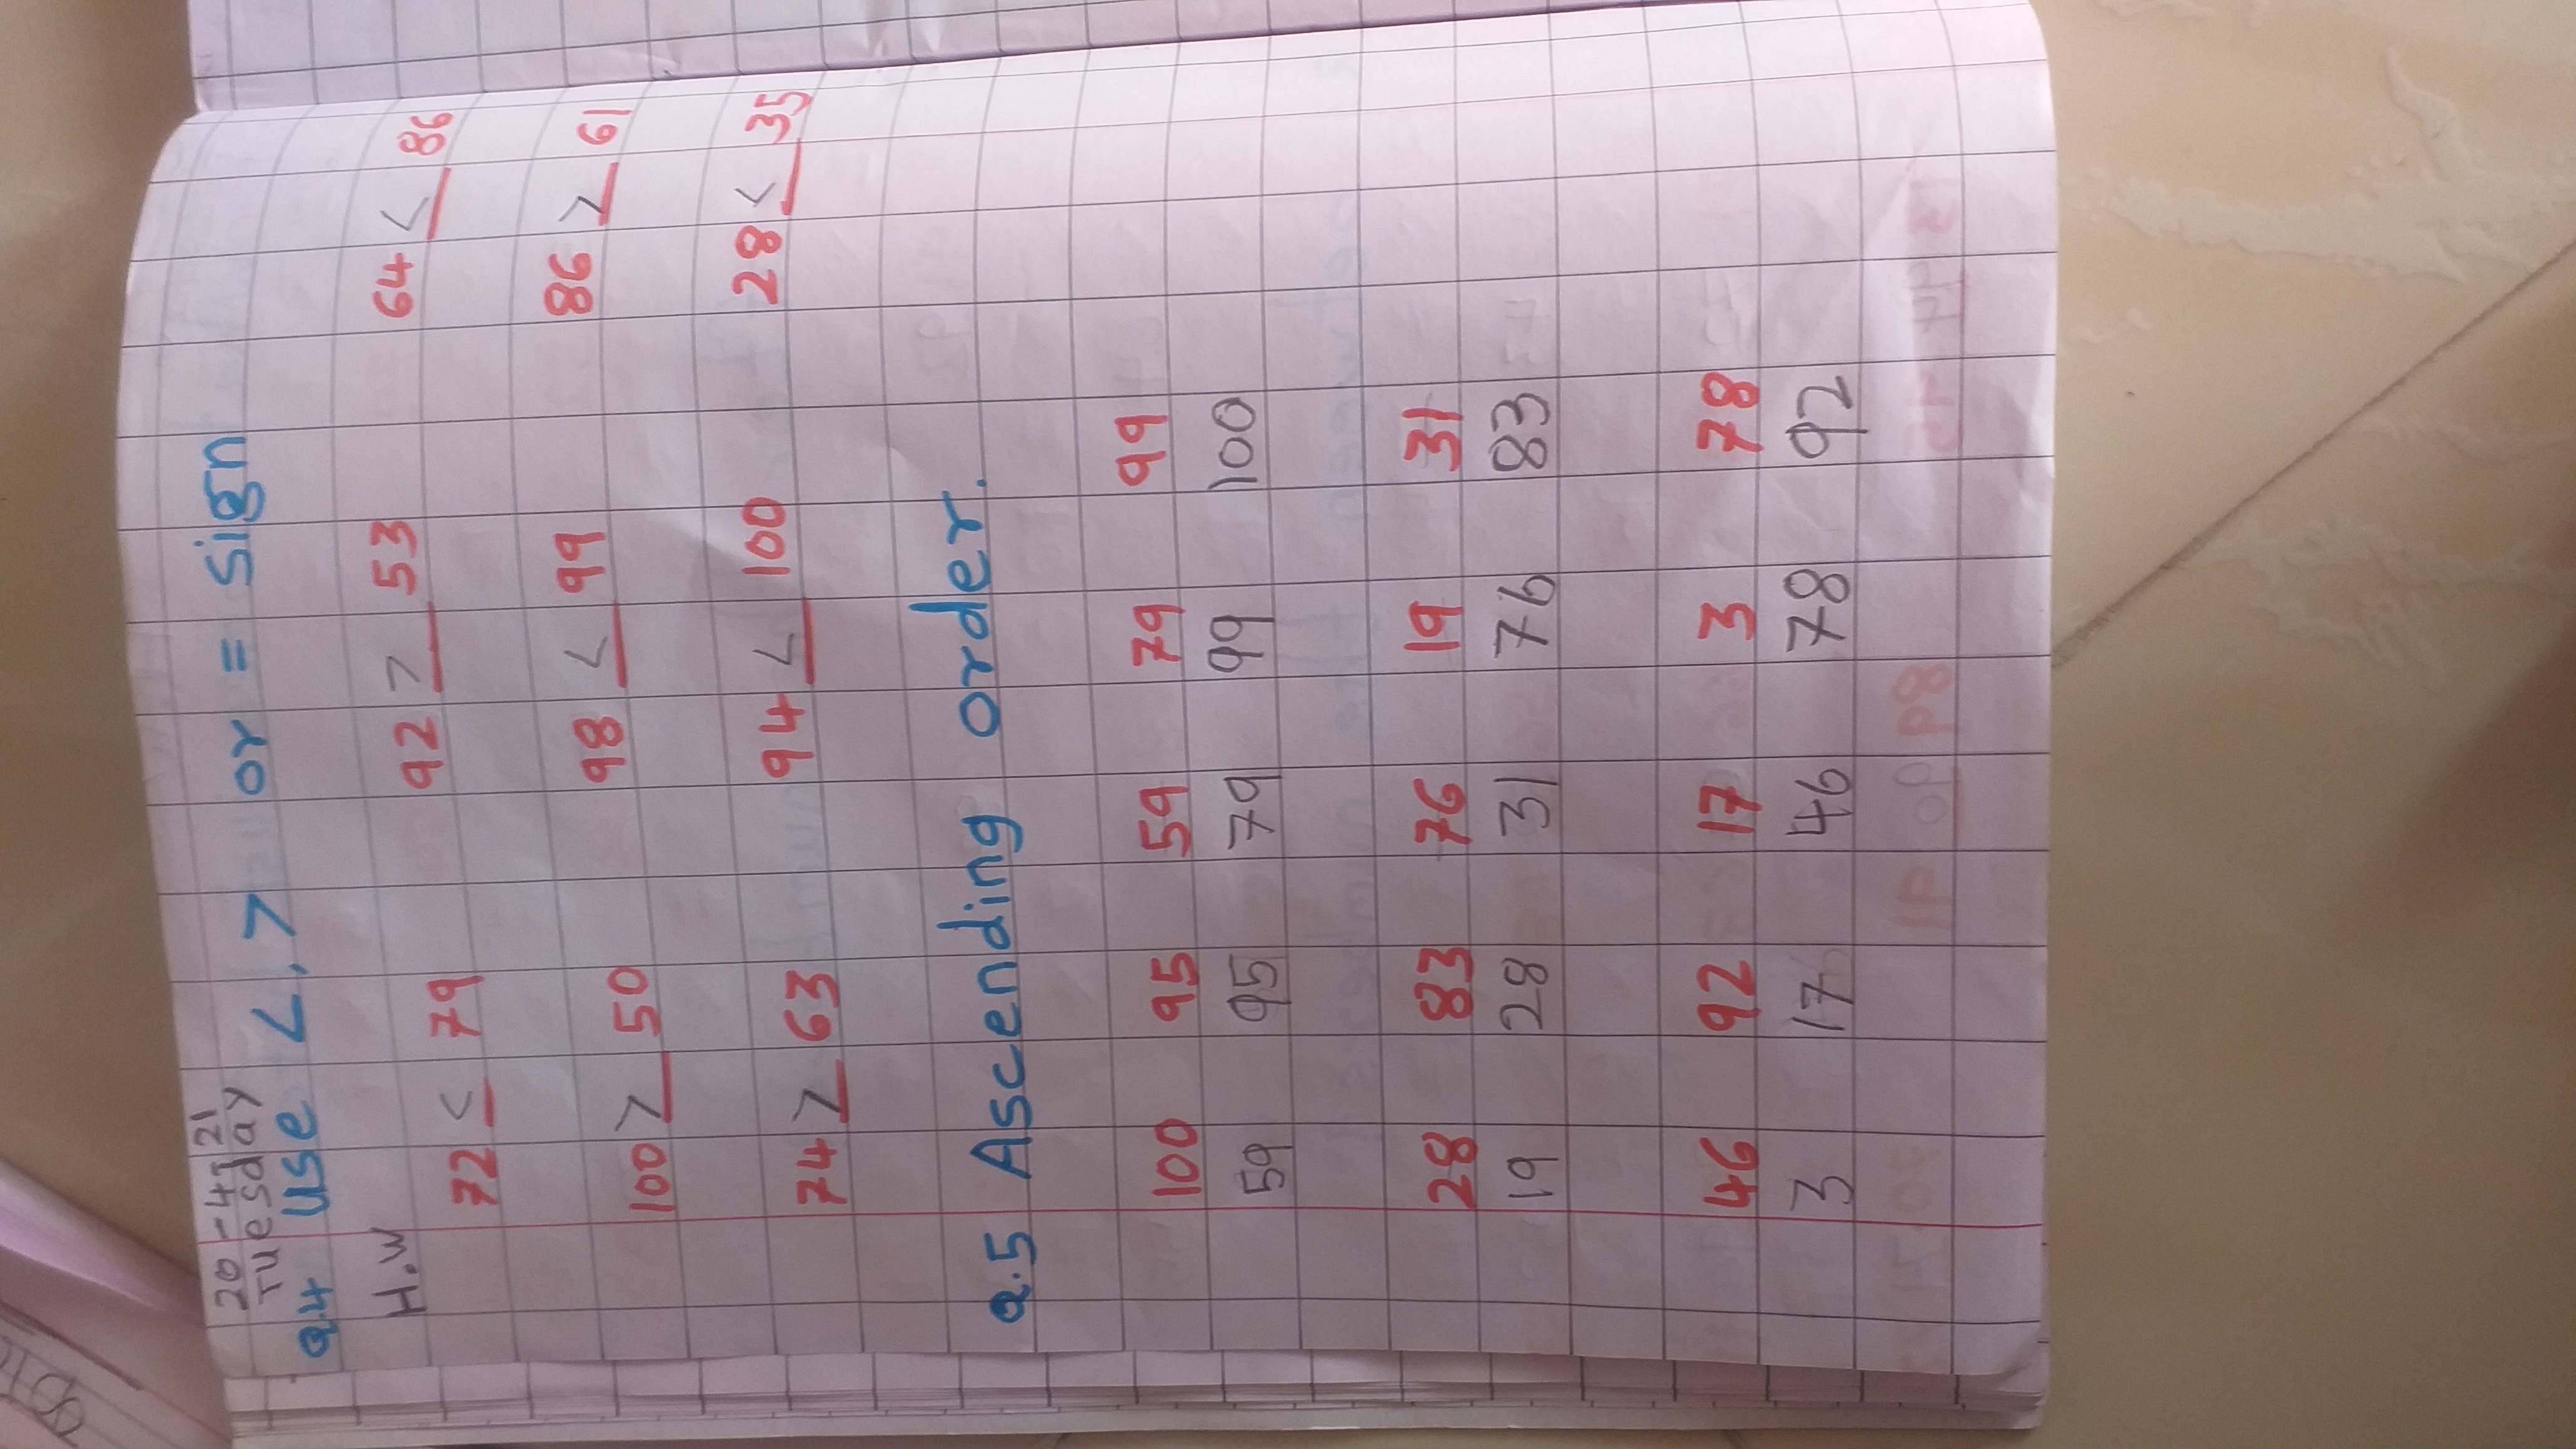 20-4-21
Tuesday
Q.4 use <.> or = sign
H.w
72 < 79 92 > 53 64 < 86
100 > 50 98 < 99 86 > 61
74 > 63 94 < 100 28 < 35
Q.5 Ascending order.
100 95 59 79 99
59 95 79 99 100
28 83 76 19 31
19 28 31 76 83
46 92 17 3 78
3 17 46 78 92